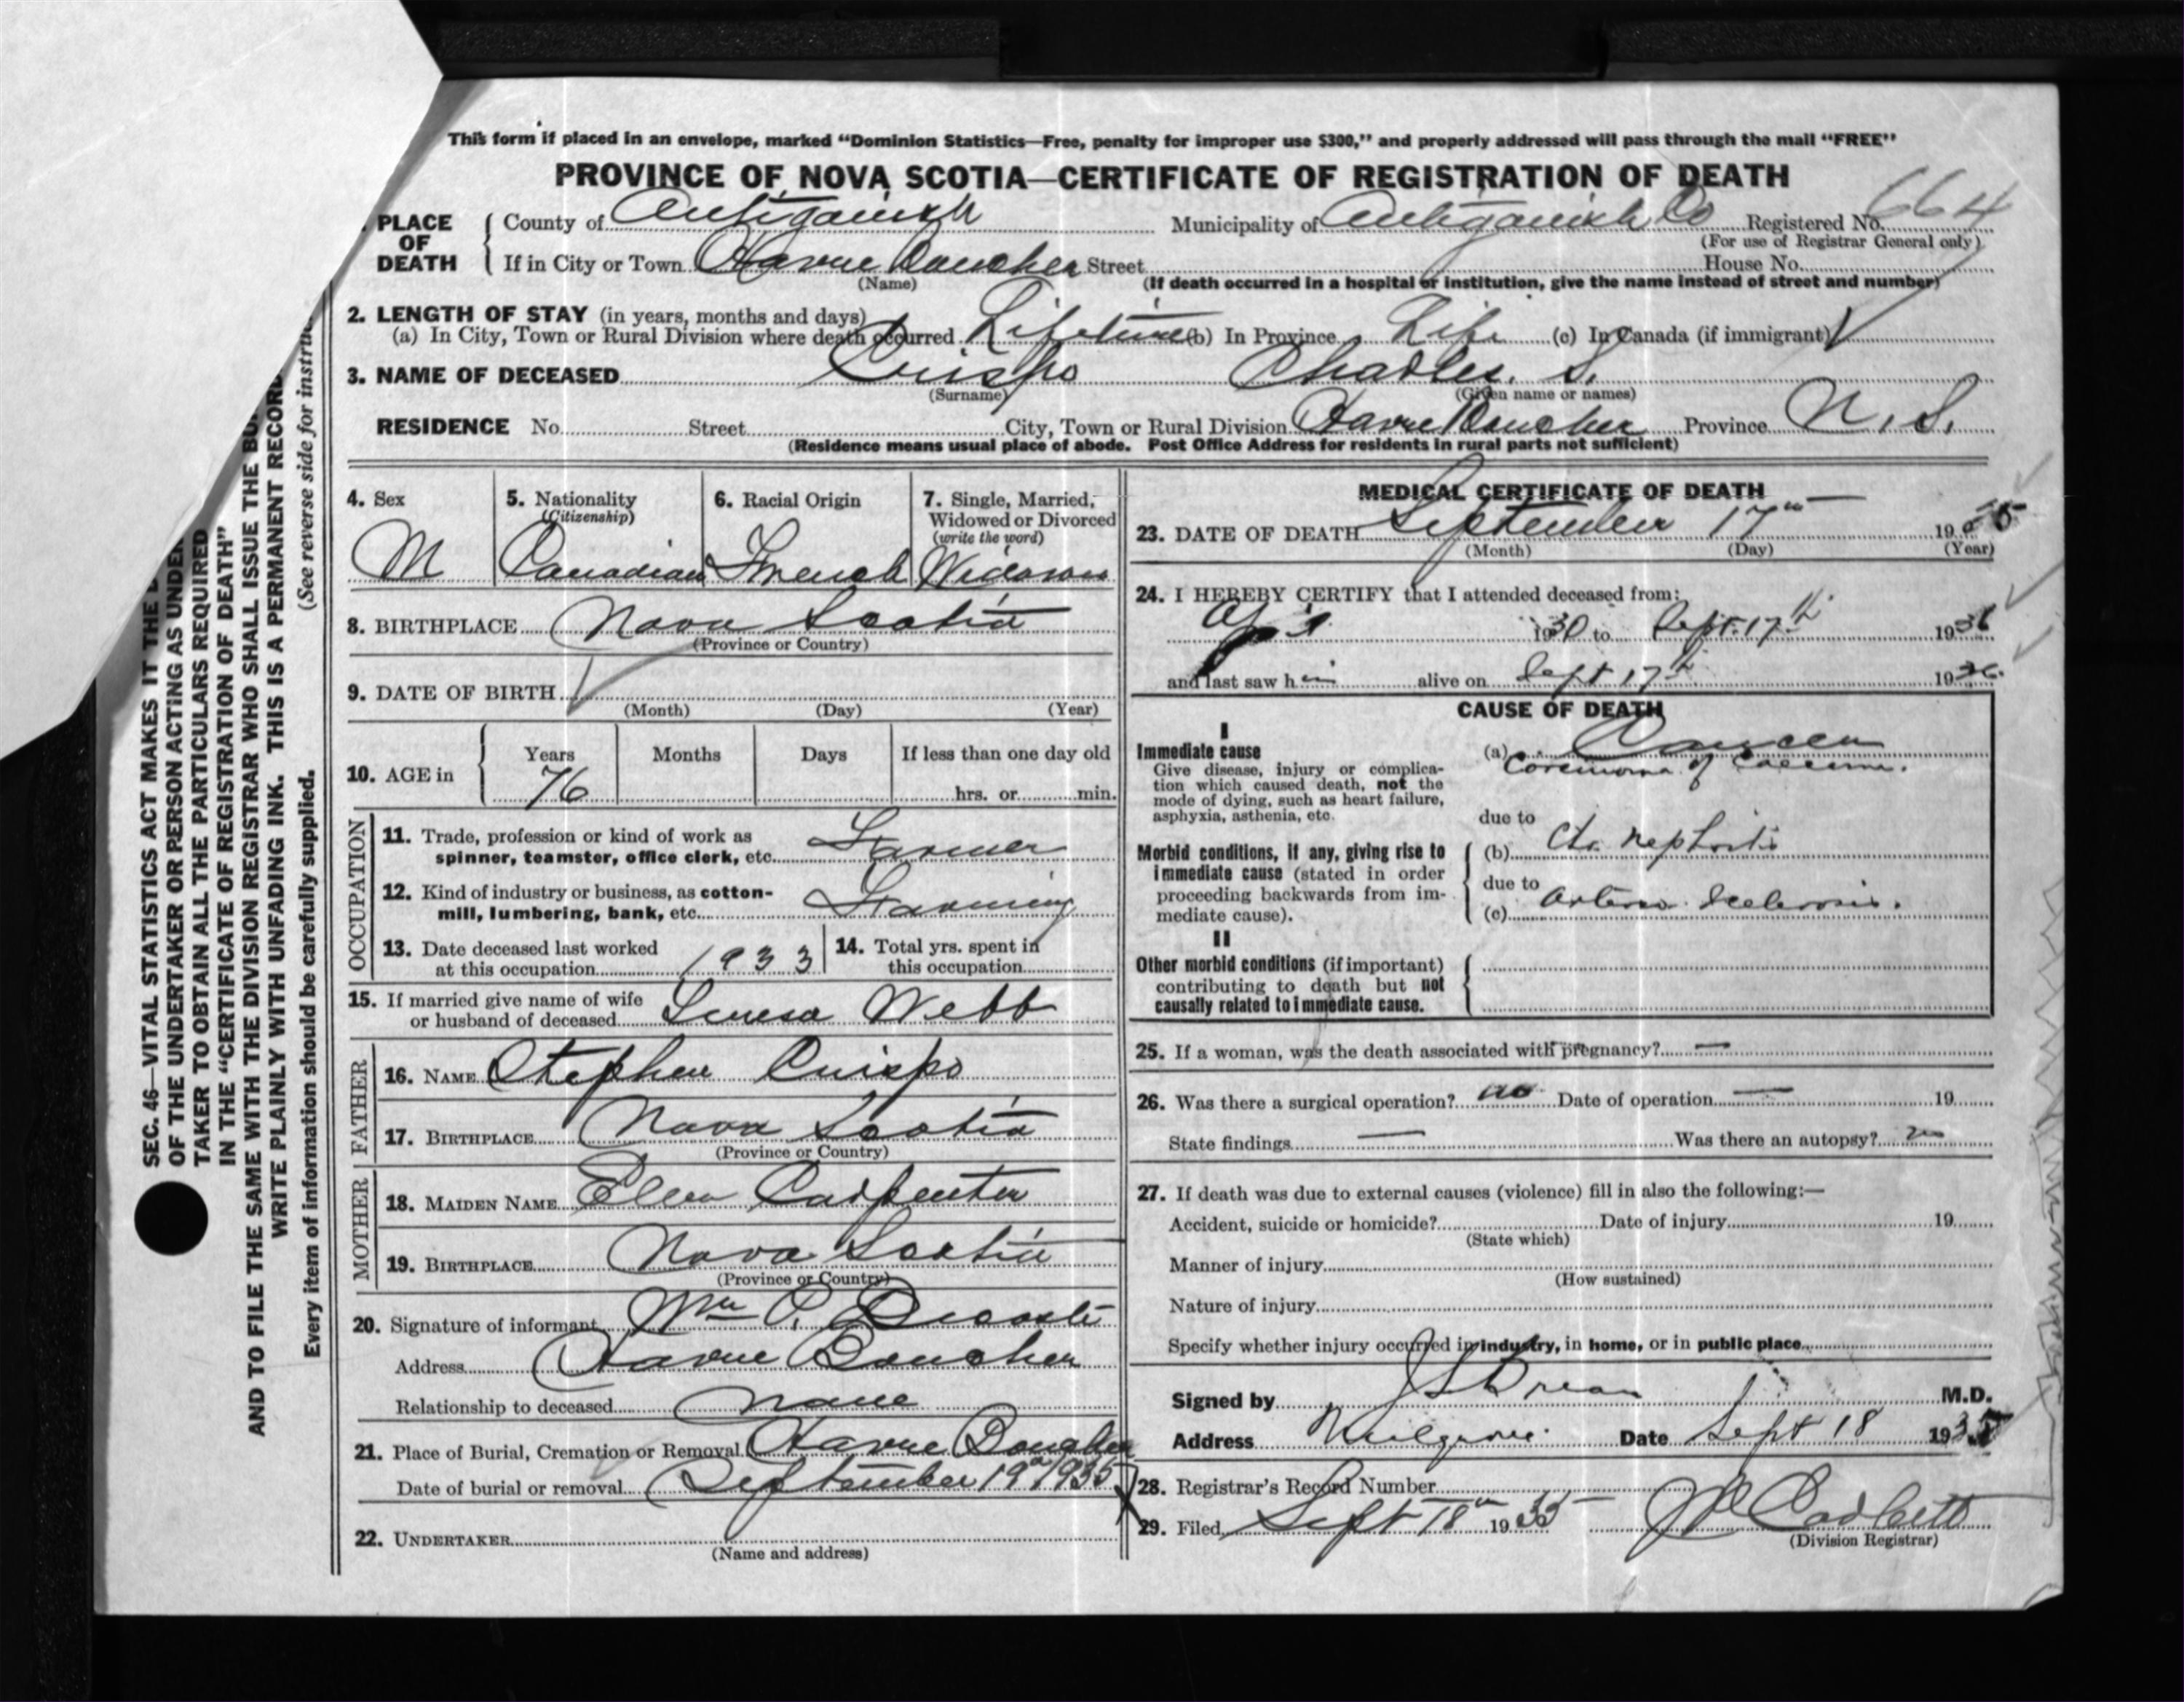 This form if placed in an envelope, marked “Dominion Statistics—Free, penalty for improper use $300,” and properly addressed will pass through the mail “FREE”
PROVINCE OF NOVA SCOTIA—CERTIFICATE OF REGISTRATION OF DEATH
664
PLACE OF DEATH County of Antigonish Municipality of Antigonish Co Registered No.
(For use of Registrar General only)
If in City or Town Havre Boucher Street House No.
(Name) (If death occurred in a hospital or institution, give the name instead of street and number)
2. LENGTH OF STAY (in years, months and days)
(a) In City, Town or Rural Division where death occurred Lifetime (b) In Province Life (c) In Canada (if immigrant)
3. NAME OF DECEASED Crispo Charles. S.
(Surname) (Given name or names)
RESIDENCE No. Street City, Town or Rural Division Havre Boucher Province N. S.
(Residence means usual place of abode. Post Office Address for residents in rural parts not sufficient)
4. Sex
M
5. Nationality
(Citizenship)
Canadian
6. Racial Origin
French
7. Single, Married,
Widowed or Divorced
(write the word)
8. BIRTHPLACE Nova Scotia
(Province or Country)
9. DATE OF BIRTH
(Month) (Day) (Year)
10. AGE in Years Months Days If less than one day old
76 hrs. or min.
OCCUPATION
11. Trade, profession or kind of work as
spinner, teamster, office clerk, etc. Farmer
12. Kind of industry or business, as cotton-
mill, lumbering, bank, etc. Farming
13. Date deceased last worked
at this occupation 1933
14. Total yrs. spent in
this occupation
15. If married give name of wife
or husband of deceased Webb
FATHER
16. NAME Stephen Crispo
17. BIRTHPLACE Nova Scotia
(Province or Country)
MOTHER
18. MAIDEN NAME Ellen Carpenter
19. BIRTHPLACE Nova Scotia
(Province or Country)
20. Signature of informant Wm P. Decoste
Address Havre Boucher
Relationship to deceased None
21. Place of Burial, Cremation or Removal Havre Boucher
Date of burial or removal September 19th 1935
22. UNDERTAKER
(Name and address)
MEDICAL CERTIFICATE OF DEATH
23. DATE OF DEATH September 17th 19 35
(Month) (Day) (Year)
24. I HEREBY CERTIFY that I attended deceased from:
1930 to Sept. 17th 1936
and last saw him alive on Sept 17th 1936
CAUSE OF DEATH
I
Immediate cause
Give disease, injury or complica-
tion which caused death, not the
mode of dying, such as heart failure,
asphyxia, asthenia, etc.
(a) Cancer
Carcinoma of Caecum.
due to
Morbid conditions, if any, giving rise to
immediate cause (stated in order
proceeding backwards from im-
mediate cause).
(b) Chr. Nephritis
due to
(c) Arterio Sclerosis.
II
Other morbid conditions (if important)
contributing to death but not
causally related to immediate cause.
25. If a woman, was the death associated with pregnancy? —
26. Was there a surgical operation? no Date of operation — 19
State findings — Was there an autopsy? no
27. If death was due to external causes (violence) fill in also the following:—
Accident, suicide or homicide? Date of injury 19
(State which)
Manner of injury
(How sustained)
Nature of injury
Specify whether injury occurred in industry, in home, or in public place
Signed by M.D.
Address Mulgrave Date Sept 18 1935
28. Registrar's Record Number
29. Filed Sept 18th 1935
(Division Registrar)
SEC. 46—VITAL STATISTICS ACT MAKES IT THE
OF THE UNDERTAKER OR PERSON ACTING AS UNDER
TAKER TO OBTAIN ALL THE PARTICULARS REQUIRED
IN THE “CERTIFICATE OF REGISTRATION OF DEATH”
AND TO FILE THE SAME WITH THE DIVISION REGISTRAR WHO SHALL ISSUE THE BU
WRITE PLAINLY WITH UNFADING INK. THIS IS A PERMANENT RECORD
Every item of information should be carefully supplied. (See reverse side for instruc